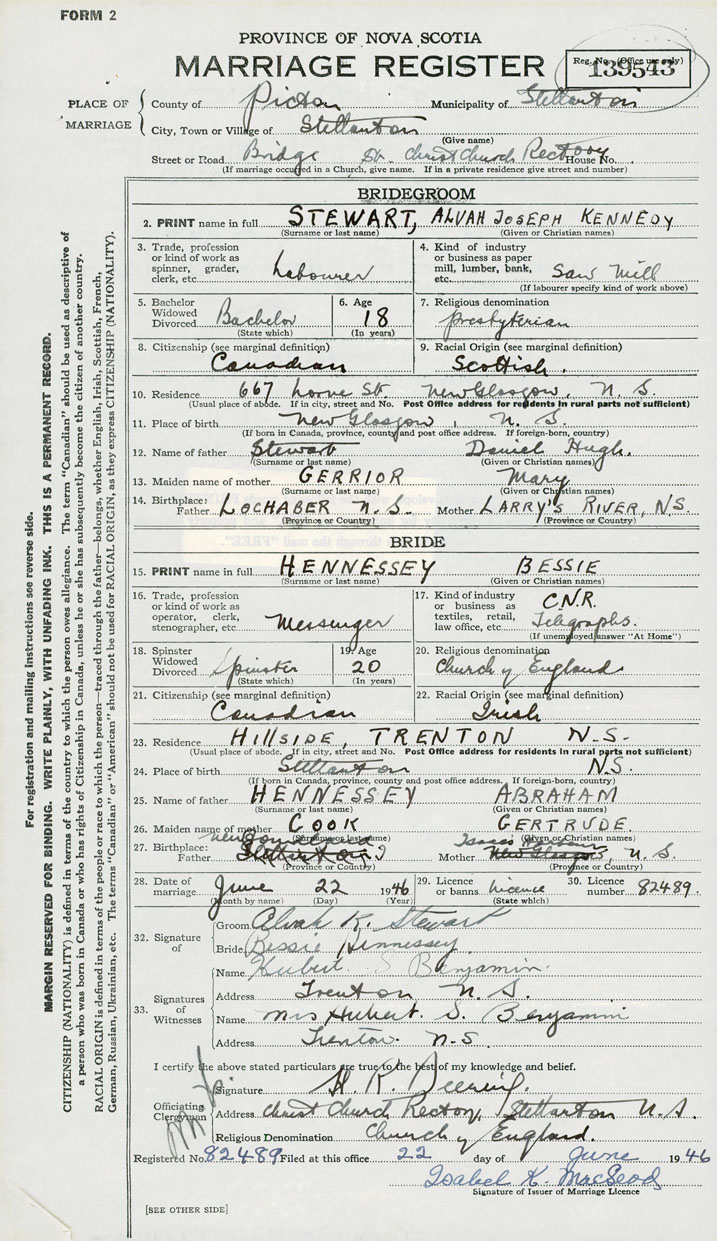 FORM 2
PROVINCE OF NOVA SCOTIA
MARRIAGE REGISTER
Reg. No. (Office use only)
139543
PLACE OF MARRIAGE
County of Pictou Municipality of Stellarton
City, Town or Village of Stellarton
(Give name)
Street or Road Bridge St. Christ Church Rectory House No.
(If marriage occurred in a Church, give name. If in a private residence give street and number)
BRIDEGROOM
2. PRINT name in full STEWART, ALVAH JOSEPH KENNEDY
(Surname or last name) (Given or Christian names)
3. Trade, profession or kind of work as spinner, grader, clerk, etc. Labourer
4. Kind of industry or business as paper mill, lumber, bank, etc. Saw Mill
(If labourer specify kind of work above)
5. Bachelor Widowed Divorced Bachelor
(State which)
6. Age 18
(In years)
7. Religious denomination
Presbyterian
8. Citizenship (see marginal definition)
Canadian
9. Racial Origin (see marginal definition)
Scottish.
10. Residence 667 Lorne St. New Glasgow, N. S.
(Usual place of abode. If in city, street and No. Post Office address for residents in rural parts not sufficient)
11. Place of birth New Glasgow, N. S.
(If born in Canada, province, county and post office address. If foreign-born, country)
12. Name of father Stewart Daniel Hugh.
(Surname or last name) (Given or Christian names)
13. Maiden name of mother GERRIOR Mary
(Surname or last name) (Given or Christian names)
14. Birthplace: Father LOCHABER N.S. Mother LARRY'S RIVER, N.S.
(Province or Country) (Province or Country)
BRIDE
15. PRINT name in full HENNESSEY BESSIE
(Surname or last name) (Given or Christian names)
16. Trade, profession or kind of work as operator, clerk, stenographer, etc. Messenger
17. Kind of industry or business as textiles, retail, law office, etc. C.N.R. Telegraphs.
(If unemployed answer "At Home")
18. Spinster Widowed Divorced Spinster
(State which)
19. Age 20
(In years)
20. Religious denomination
Church of England
21. Citizenship (see marginal definition)
Canadian
22. Racial Origin (see marginal definition)
Irish
23. Residence HILLSIDE, TRENTON N.S.
(Usual place of abode. If in city, street and No. Post Office address for residents in rural parts not sufficient)
24. Place of birth Stellarton N.S.
(If born in Canada, province, county and post office address. If foreign-born, country)
25. Name of father HENNESSEY ABRAHAM
(Surname or last name) (Given or Christian names)
26. Maiden name of mother COOK GERTRUDE.
(Surname or last name) (Given or Christian names)
27. Birthplace: Father Stellarton Mother Isaac's Harbour New Glasgow, N. S.
(Province or Country) (Province or Country)
28. Date of marriage June 22 1946
(Month by name) (Day) (Year)
29. Licence or banns licence
(State which)
30. Licence number 82489
32. Signature of
Groom Alvah K. Stewart
Bride Bessie Hennessey
33. Signatures of Witnesses
Name Hubert S Benjamin
Address Trenton N. S.
Name Mrs Hubert S. Benjamin
Address Trenton. N-S.
I certify the above stated particulars are true to the best of my knowledge and belief.
Officiating Clergyman
Signature H. R. Deering.
Address Christ Church Rectory, Stellarton N.S.
Religious Denomination Church of England.
Registered No. 82489 Filed at this office 22 day of June 1946
Isabel K. MacLeod
Signature of Issuer of Marriage Licence
[SEE OTHER SIDE]
For registration and mailing instructions see reverse side.
MARGIN RESERVED FOR BINDING. WRITE PLAINLY, WITH UNFADING INK. THIS IS A PERMANENT RECORD.
CITIZENSHIP (NATIONALITY) is defined in terms of the country to which the person owes allegiance. The term "Canadian" should be used as descriptive of
a person who was born in Canada or who has rights of Citizenship in Canada, unless he or she has subsequently become the citizen of another country.
RACIAL ORIGIN is defined in terms of the people or race to which the person—traced through the father—belongs, whether English, Irish, Scottish, French,
German, Russian, Ukrainian, etc. The terms "Canadian" or "American" should not be used for RACIAL ORIGIN, as they express CITIZENSHIP (NATIONALITY).